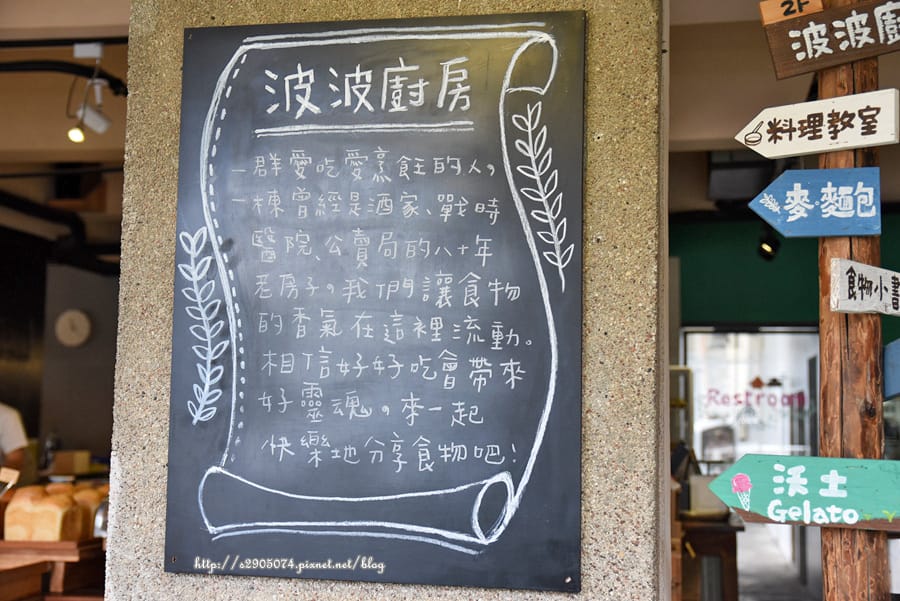 波波廚房
一群愛吃愛烹飪的人。
一棟曾經是酒家、戰時
醫院、公賣局的八十年
老房子。我們讓食物
的香氣在這裡流動。
相信好好吃會帶來
好靈魂。來一起
快樂地分享食物吧!
http://s2905074.pixnet.net/blog
2F
波波廚
料理教室
麥。麵包
食物小書
Restroom
沃土
Gelato